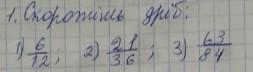 1. Скоротіть дріб:
1) 6/12; 2) 21/36; 3) 63/84